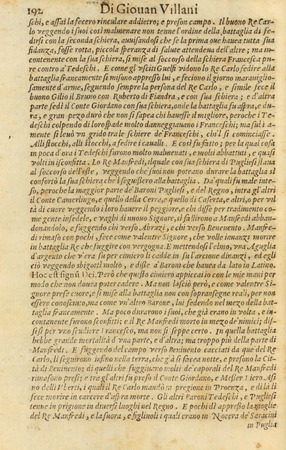 192. Di Giouan Villani
schi, e assai la fecero rinculare addietro, e preson campo. Il buono Re Car-
lo veggendo i suoi così malmenare non tenne l'ordine della battaglia di fe-
dirsi con la seconda schiera, auuisandosi che se la prima oue hauea tutta sua
fidanza, fosse rotta, piccola speranza di salute attendeua dell'altre; ma in-
contanente con la sua schiera, si misse al soccorso della schiera Francesca pu-
re contro a' Tedeschi. E come gl'vsciti Guelfi vidono lo Re Carlo fedire alla
battaglia francamente si misono appresso lui, e feciono il giorno marauigliosa-
mente d'arme, seguendo sempre la persona del Re Carlo, e simile fece il
buono Gilio il Bruno con Ruberto di Fiandra, con sua schiera; e d'altra
parte fedì il Conte Giordano con sua schiera, onde la battaglia fu aspra, e du-
ra, e gran pezo durò che non si sapea chi hauesse il migliore, peroche i Te-
deschi colpendo di loro spade molto danneggiauano i Franceschi; ma su'l a-
mente si leuò vn grido tra le schiere de' Franceschi, chi'l si cominciasse,
Alli stocchi, alli stocchi, a fedire i caualli. E così fu fatto; per la qual cosa
in poca d'ora i Tedeschi furono molto malmenati, e molto abbattuti, e quasi
volti in isconfitta. Lo Re Manfredi, ilquale con sua schiera di Pugliesi staua
al soccorso dell'oste, veggendo che suoi non poteano durare la battaglia si
confortò la sua schiera che'l seguissero alla battaglia. Da' quali fu male inte-
so, peroche la maggior parte de' Baroni Pugliesi, e del Regno, intra gl'altri
il Conte Camerlingo, e quello della Cerra, e quello di Caserta, e altri, o per vil
tà di cuore veggendo loro hauere il peggiore, e chi disse per tradimento co-
me gente infedele, e vaghi di nuouo Signore, si fallirono a Manfredi abban-
donandolo, e fuggendo chi verso Abruzi, e chi verso Beniuento. Manfre-
di rimaso con pochi, fece come valente Signore, che volle innanzi morire
in battaglia Re che fuggire con vergogna. E mettendosi l'elmo, vna Aguglia
d'argento che v'era su per cimiero li cadde in su l'arcione dinanzi, ed egli
ciò veggendo sbigottì molto, e disse a' Baroni che hauea da lato in Latino.
Hoc est signũ Dei. Però che quello cimiero appiccai io con le mie mani per
modo che non douea potere cadere. Ma non lasciò però, e come valente Si-
gnore prese cuore, si misse alla battaglia non con soprasegne reali, per non
essere conosciuto, ma come vn'altro Barone, lui fedendo nel mezo della bat-
taglia francamente. Ma poco durarono i suoi, che già erano in volta, e in-
contanente furono sconfitti; e il Re Manfredi morto in mezo de' nimici; dis-
sesi per vno scudiere Francesco, ma non si seppe certo. In quella battaglia
hebbe grande mortalità d'vna parte, e d'altra; ma troppo più della parte di
Manfredi. E fuggendo del campo verso Beniuento cacciati da que' del Re
Carlo, li seguirono infino nella terra, che si facea notte, e presono la Cit-
tà di Beniuento; e di quelli che fuggiuano molti de' caporali del Re Manfredi
rimasono presi; e tra gl'altri fu preso il Conte Giordano, e Messer Piero Asi
no delli Vberti, i quali il Re Carlo mandò in pregione in Proenza, e di là li
fece morire in carcere d'aspra morte. Gli altri Baroni Tedeschi, e Pugliesi
tenne in prigione in diuersi luoghi nel Regno. E pochi dì appresso la moglie
del Re Manfredi, e la suora, e figliuoli; i quali erano in Nocera de' Saracini
in Puglia